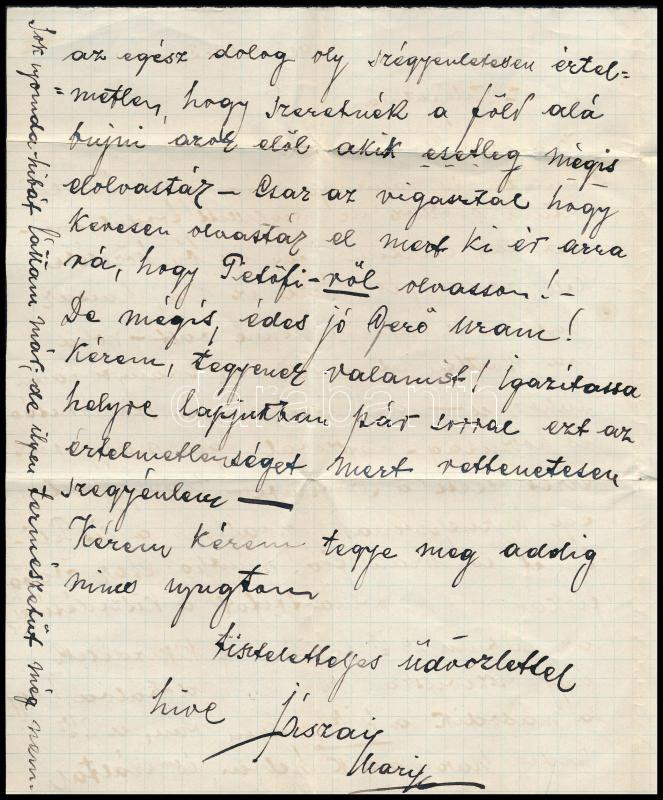 az egész dolog oly szégyenletesen értel=
=metlen, hogy szeretnék a föld alá
bújni azok elől akik esetleg mégis
elolvasták – Csak az vigasztal hogy
kevesen olvasták el mert ki ér arra
rá, hogy Petőfi-ről olvasson! –
De mégis, édes jó Gerő Uram!
Kérem, tegyenek valamit! Igazítassa
helyre lapjukban pár sorral ezt az
értelmetlenséget mert rettenetesen
szégyenlem —
Kérem kérem tegye meg addig
nincs nyugtom
tiszteletteljes üdvözlettel
hive Jászai
Mari
Sok nyomda-hibát láttam már, de ilyen természetűt még nem.
darabanth